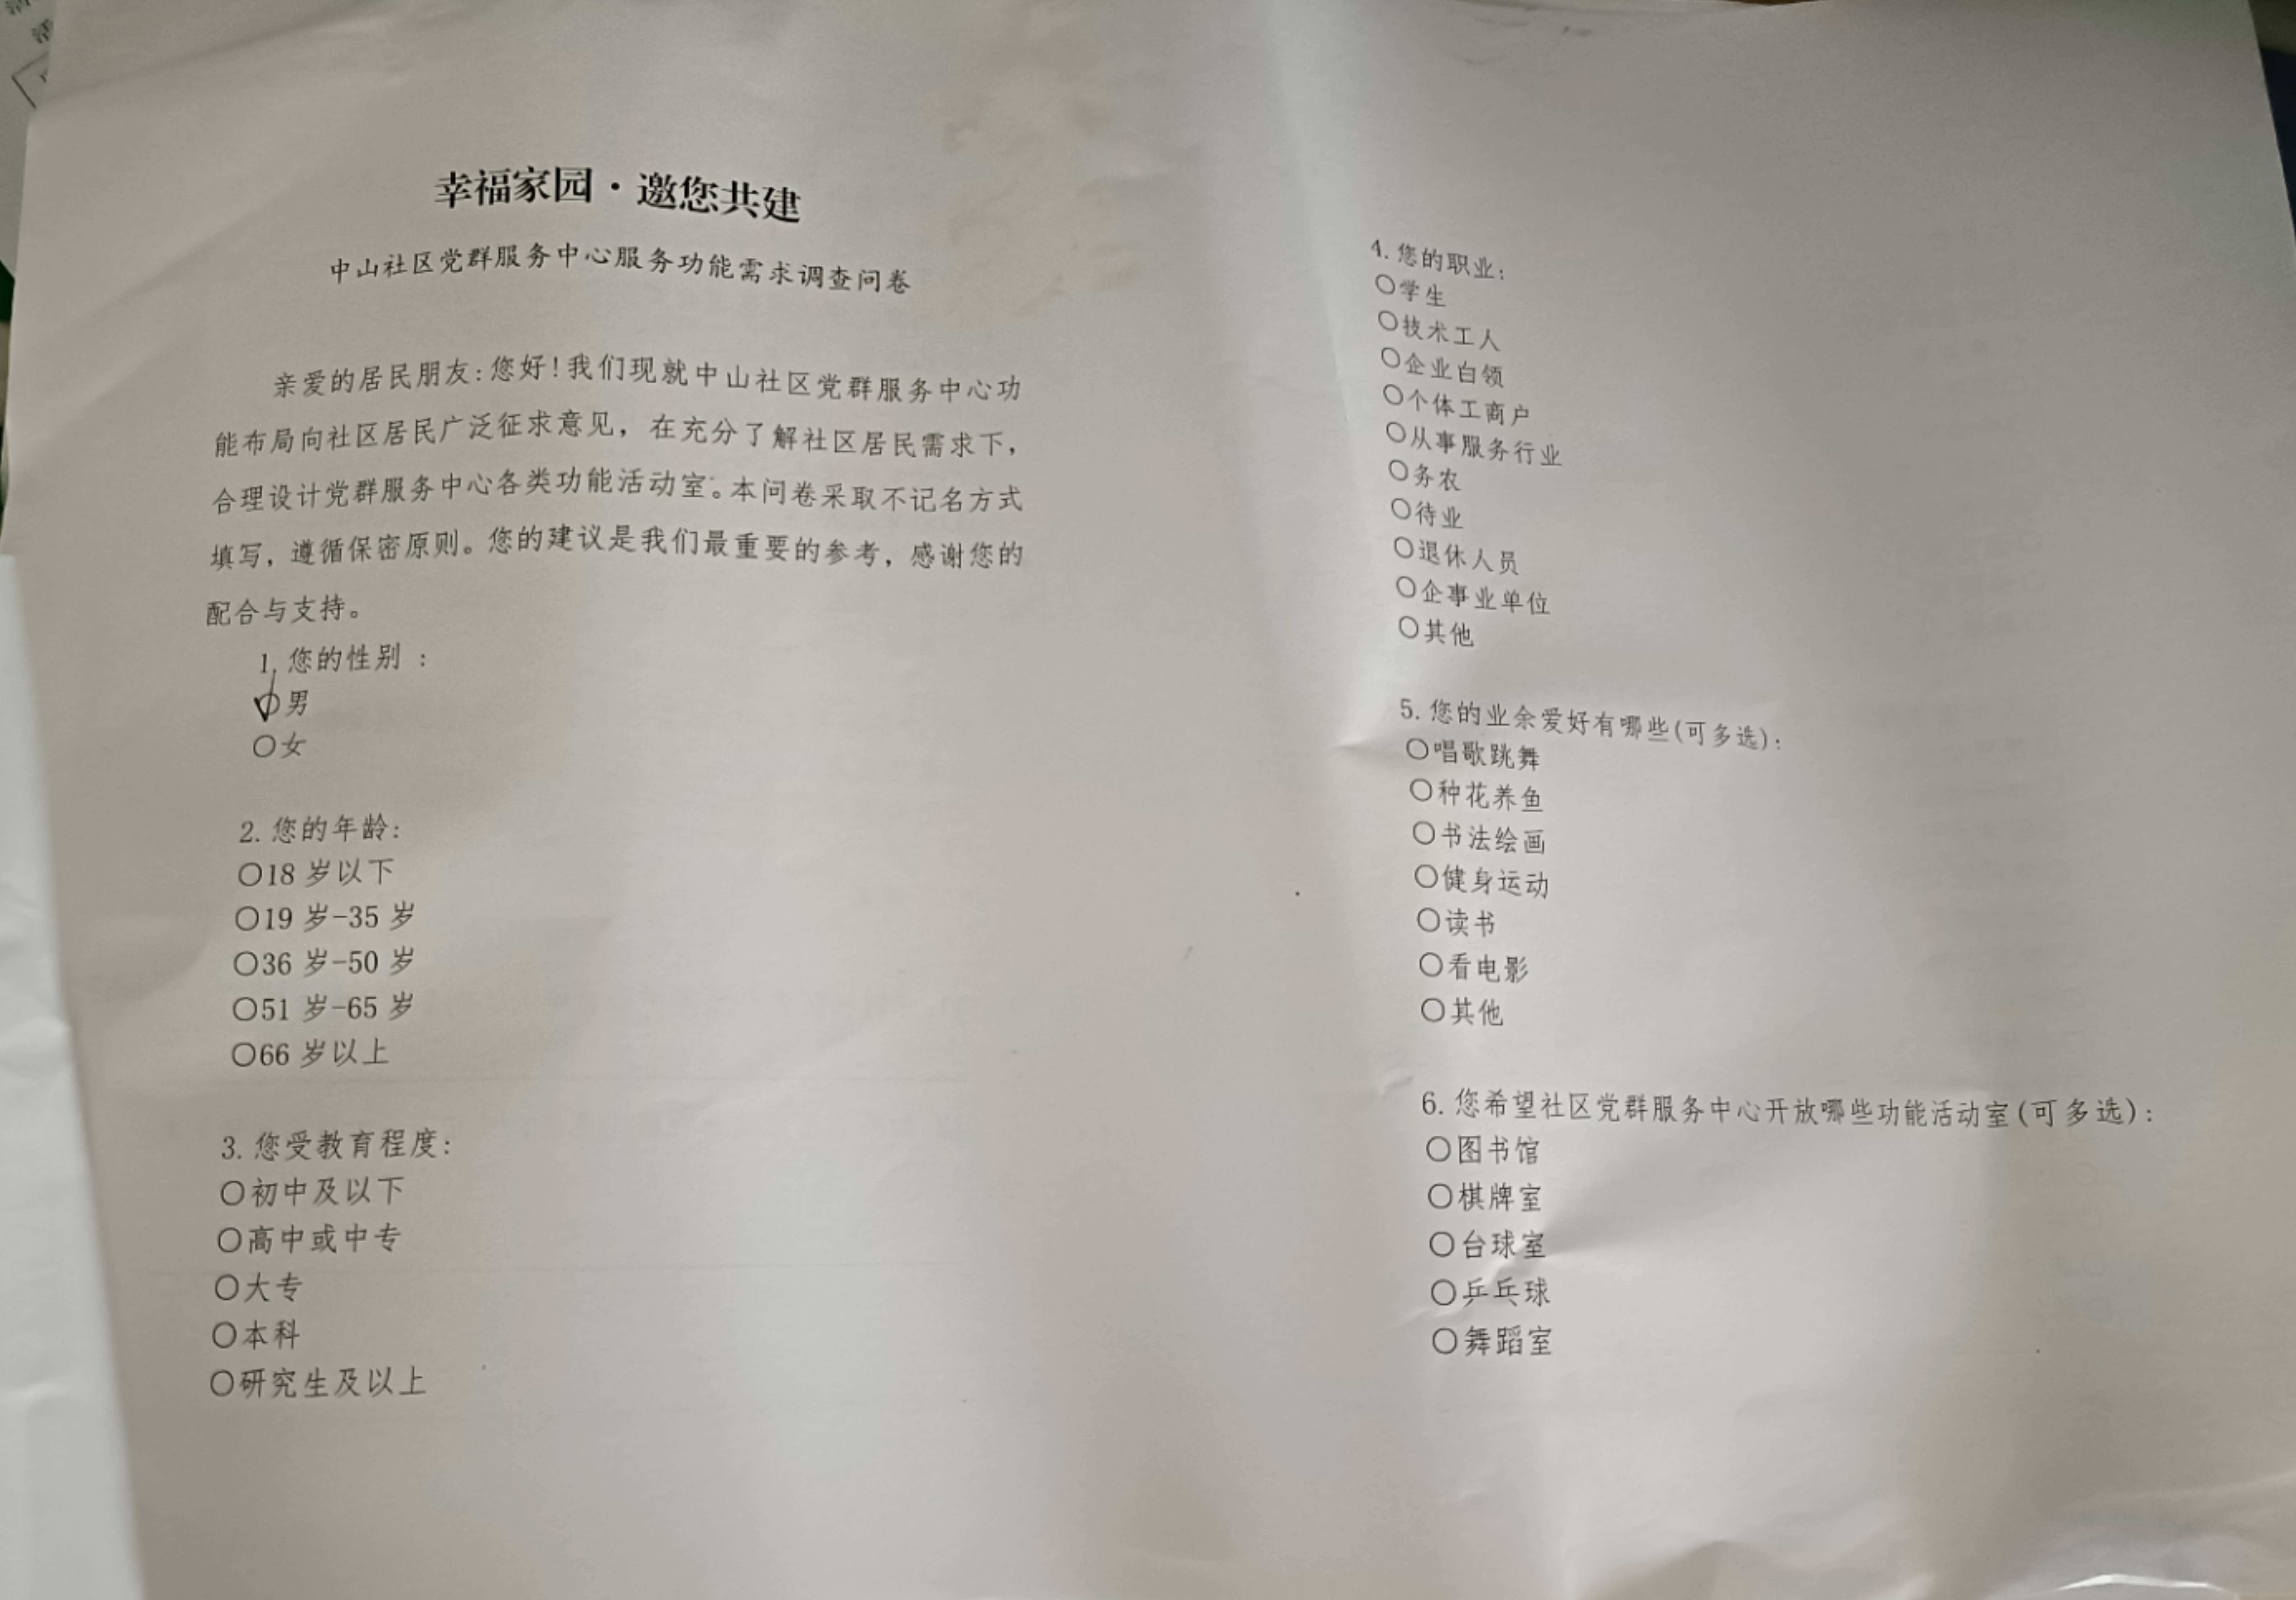 幸福家园·邀您共建
中山社区党群服务中心服务功能需求调查问卷
亲爱的居民朋友:您好!我们现就中山社区党群服务中心功
能布局向社区居民广泛征求意见，在充分了解社区居民需求下，
合理设计党群服务中心各类功能活动室。本问卷采取不记名方式
填写，遵循保密原则。您的建议是我们最重要的参考，感谢您的
配合与支持。
1.您的性别：
✓○男
○女
2.您的年龄:
○18 岁以下
○19 岁-35 岁
○36 岁-50 岁
○51 岁-65 岁
○66 岁以上
3.您受教育程度:
○初中及以下
○高中或中专
○大专
○本科
○研究生及以上
4.您的职业:
○学生
○技术工人
○企业白领
○个体工商户
○从事服务行业
○务农
○待业
○退休人员
○企事业单位
○其他
5.您的业余爱好有哪些(可多选):
○唱歌跳舞
○种花养鱼
○书法绘画
○健身运动
○读书
○看电影
○其他
6.您希望社区党群服务中心开放哪些功能活动室(可多选):
○图书馆
○棋牌室
○台球室
○乒乓球
○舞蹈室